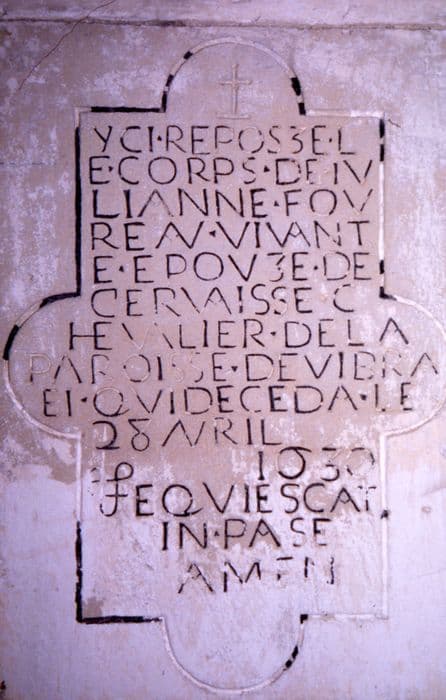 YCI·REPOSEE·L
E·CORPS·DE·IV
LIANNE·FOV
REAV·VIVANT
E·EPOVZE·DE
CERVAISSE C
HEVALIER·DE LA
PAROISSE·DE VIBRA
EI·QVI DECEDA·LE
28 AVRIL
1630
REQVIESCAT
IN·PASE
AMEN